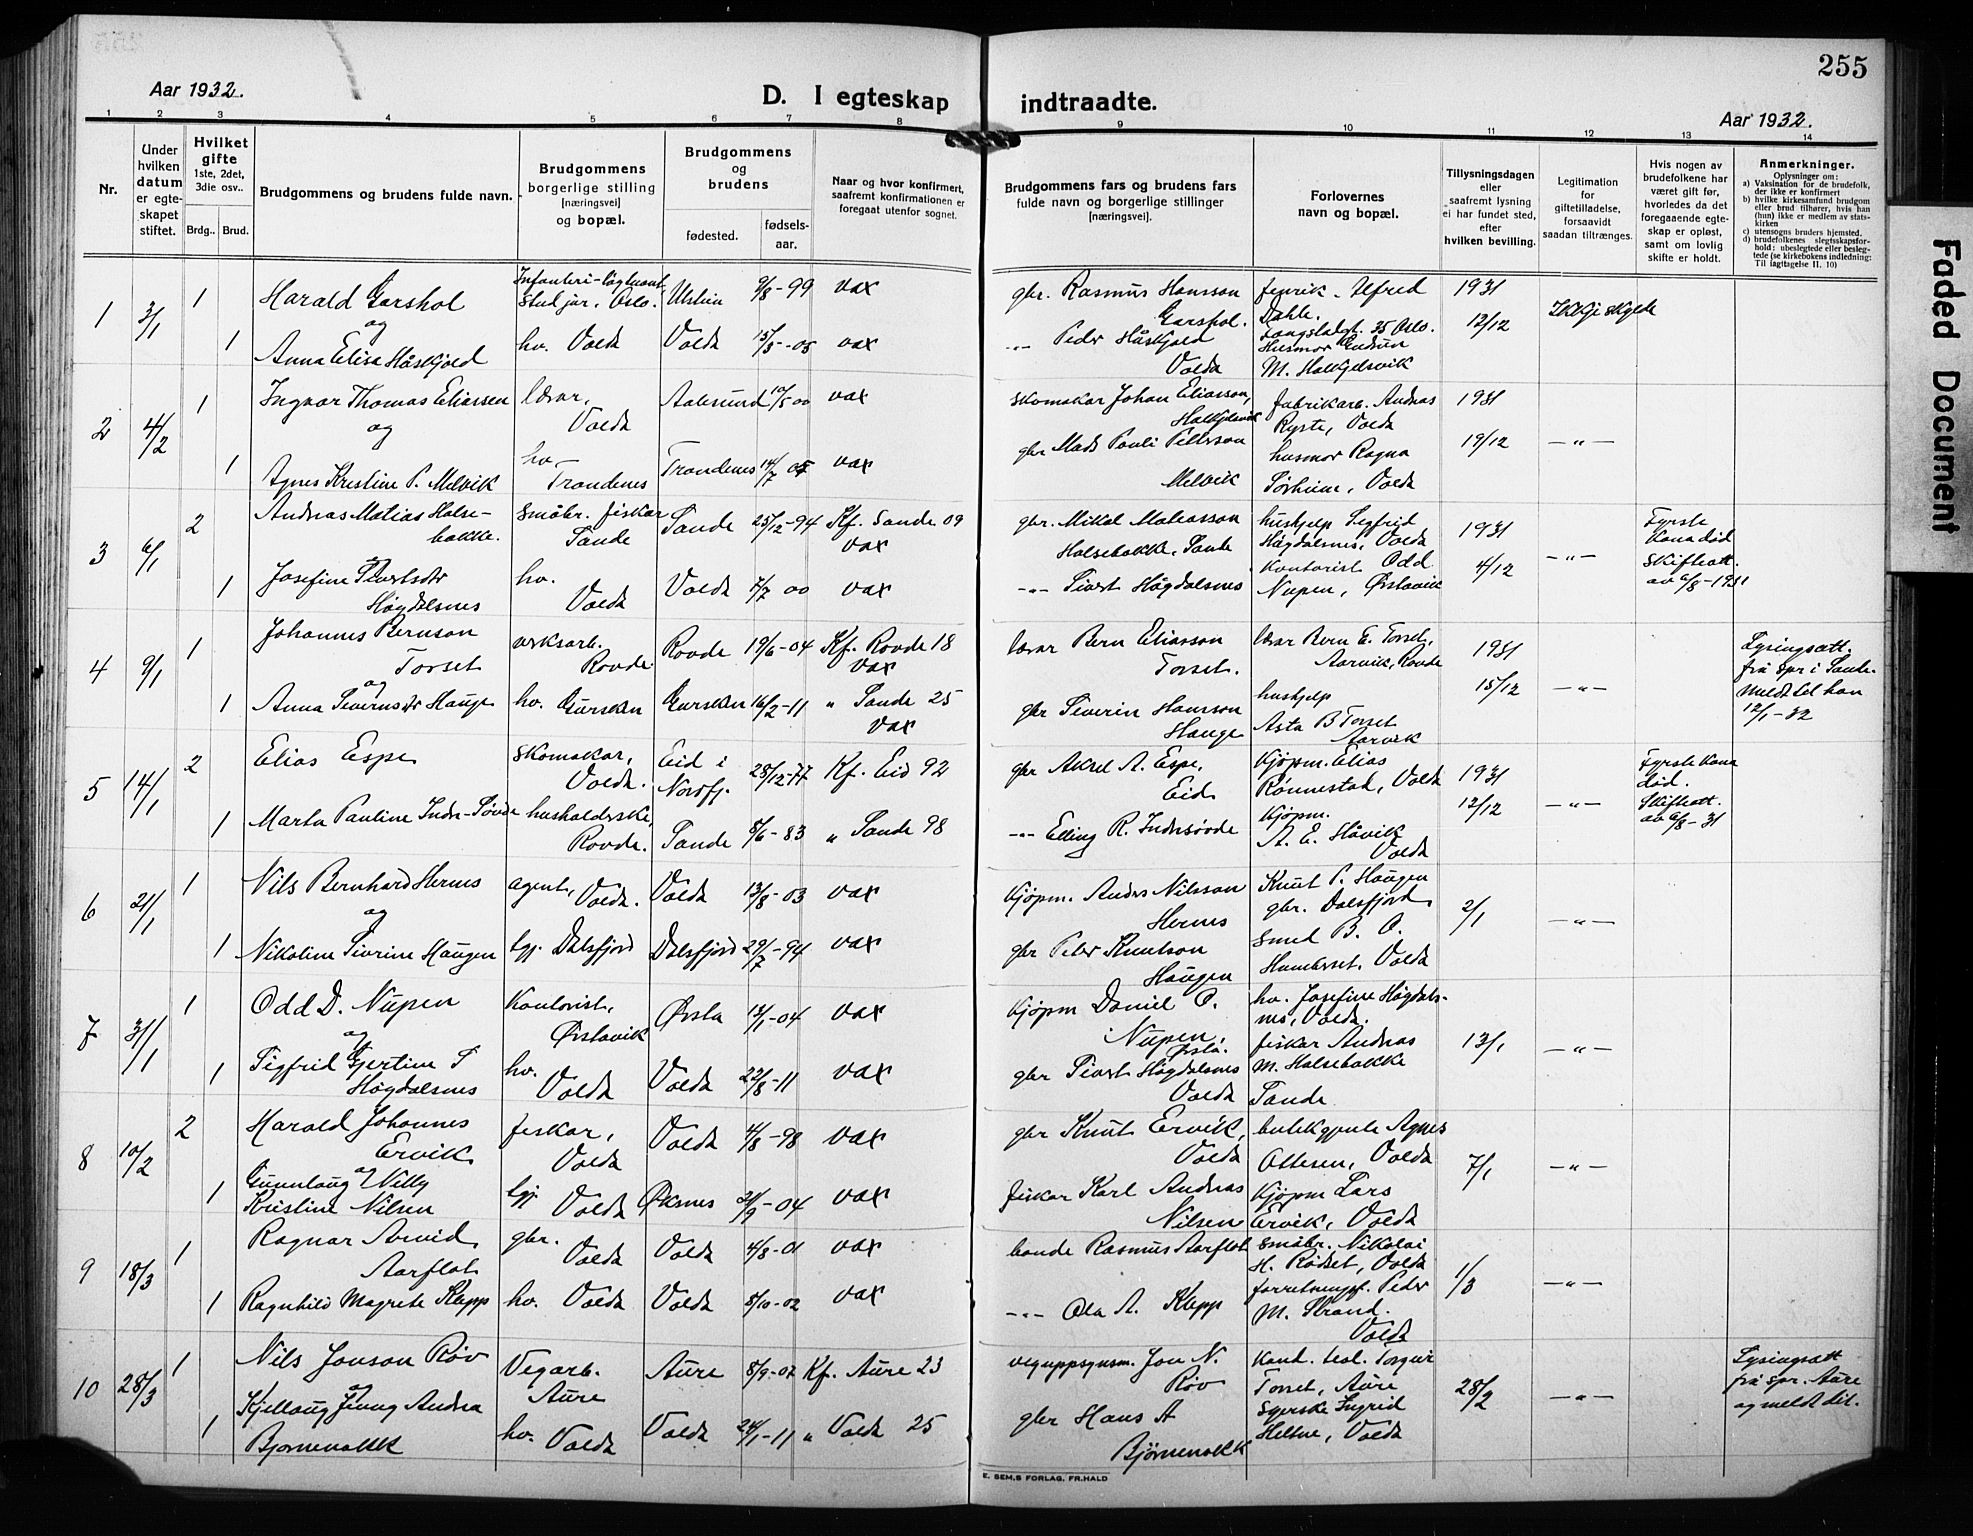 255
Aar 1932.
D. I egteskap indtraadte.
Aar 1932.
1 2 3 4 5 6 7 8 9 10 11 12 13 14
Nr.
Under hvilken datum er egteskapet stiftet.
Hvilket gifte
1ste, 2det, 3die osv..
Brdg.. Brud.
Brudgommens og brudens fulde navn.
Brudgommens borgerlige stilling [næringsvei] og bopæl.
Brudgommens og brudens
fødested.
fødselsaar.
Naar og hvor konfirmert, saafremt konfirmationen er foregaat utenfor sognet.
Brudgommens fars og brudens fars fulde navn og borgerlige stillinger [næringsvei].
Forlovernes navn og bopæl.
Tillysningsdagen eller saafremt lysning ei har fundet sted, efter hvilken bevilling.
Legitimation for giftetilladelse, forsaavidt saadan tiltrænges.
Hvis nogen av brudefolkene har været gift før, hvorledes da det foregaaende egteskap er opløst, samt om lovlig skifte er holdt.
Anmerkninger.
Oplysninger om:
a) Vaksination for de brudefolk, der ikke er konfirmert
b) hvilke kirkesamfund brudgom eller brud tilhører, hvis han (hun) ikke er medlem av statskirken
c) utensogns bruders hjemsted.
d) brudefolkenes slegtsskapsforhold: ubeslegtede eller beslegtede (se kirkebokens indledning: Til iagttagelse II. 10)
1 3/1 1 Harald Garshol stud jur. Oslo. Ulstein 9/8-99 vax gbr. Rasmus Hansson Garshol. fenrik Alfred Dahle. 35 Oslo. 1931 12/12 Ikkje skylde
og
1 Anna Elisa Håskjold hv. Volda Volda 15/5-05 vax -"- Peder Håskjold Volda Husmor Gudrun M. Halkjelsvik
2 4/2 1 Ingvar Thomas Eliassen lærar, Volda Aalesund 10/5 00 vax skomakar Johan Eliasson, Halkjelsvik fabrikarb. Andreas Ryste, Volda 1931 19/12 -"-
og
1 Agnes Kristine P. Melvik hv. Trondenes Trondenes 14/7 05 vax gbr Mads Pauli Petterson Melvik husmor Ragna Sørheim, Volda
3 6/1 2 Andreas Matias Halsebakke. småbr. fiskar Sande Sande 25/12-94 Kf. Sande 09 vax gbr. Mikal Mateasson Halsebakke, Sande hushjelp Sigfrid Høgdalsnes, Volda 1931 4/12 -"- Fyrste kona død Skifteatt. av 6/8-1931
og
1 Josefine Sivertsdtr Høgdalsnes hv. Volda Volda 7/7 00 vax -"- Sivert Høgdalsnes kontorist Odd Nupen, Ørstavik
4 9/1 1 Johannes Bernson Torset verksarb. Rovde Rovde 19/6-04 Kf. Rovde 18 vax lærar Bern Eliasson Torset. lærar Bern E. Torset, Aarvik, Rovde 1931 15/12 -"- Lysingsatt. frå spr i Sande. Meldt til han 12/1-32
og
1 Anna Severinsdtr Hauge hv. Gursken Gursken 16/2-11 " Sande 25 vax gbr Severin Hansson Hauge hushjelp Asta B Torset Aarvik
5 14/1 2 Elias Espe skomakar, Volda. Eid i Nordfj. 28/12-77 Kf. Eid 92 gbr Aksel A. Espe, Eid Kjøpm. Elias Rønnestad, Volda 1931 12/12 -"- Fyrste kona død. Skifteatt. av 6/8-31
1 Marta Pauline Indre-Søvde husholderske, Rovde. Sande 5/6-83 " Sande 98 -"- Elling R. Indresøvde Kjøpm. A. E. Håvik Volda
6 21/1 1 Nils Bernhard Hernes agent, Volda. Volda 13/8-03 vax Kjøpm. Anders Nilsson Hernes Knut P. Haugen gbr. Dalsfjord 2/1 -"-
og
1 Nikoline Sivrine Haugen tgj. Dalsfjord Dalsfjord 29/7-94 vax gbr Peter Knutson Haugen Smed B. O. Humberset. Volda
7 31/1 1 Odd D. Nupen Kontorist, Ørstavik Ørsta 13/1-04 vax Kjøpm Daniel P. Nupen, Ørsta. hv. Josefine Høgdalsnes, Volda. 13/1 -"-
og
1 Sigfrid Gjertine S Høgdalsnes hv. Volda Volda 22/8-11 vax gbr Sivert Høgdalsnes Volda fiskar Andreas M. Halsebakke Sande
8 10/2 2 Harald Johannes Ervik fiskar, Volda Volda 4/8-98 vax gbr Knut Ervik, Volda butikgjenta Agnes Ottesen, Volda 7/1 -"-
og
1 Gunnlaug Willy Kristine Nilsen tgj. Volda Øksnes 21/9-04 vax fiskar Karl Andreas Nilsen Kjøpm Lars Ervik, Volda
9 18/3 1 Ragnar Arvid Aarflot gbr. Volda Volda 4/8-01 vax bonde Rasmus Aarflot småbr. Nikolai H. Rødset, Volda 1/3 -"-
1 Ragnhild Magrete Klepp hv. Volda Volda 5/10-02 vax -"- Ola A. Klepp Peder M. Strand. Volda
10 28/3 1 Nils Jonson Røv Vegarb. Aure Aure 8/9-07 Kf. Aure 23 veguppsynsm. Jon N. Røv Kand. teol. Torgeir Torset, Aure 28/2 -"- Lysingsatt frå spr. Aure og meldt dit.
og
1 Kjellaug Jenny Andrea Bjørnevakk hv. Volda Volda 24/1-11 " Volda 25 gbr Hans A Bjørnevakk Syerske Ingrid Heltne, Volda
E. SEM,S FORLAG, FR.HALD
Faded Document